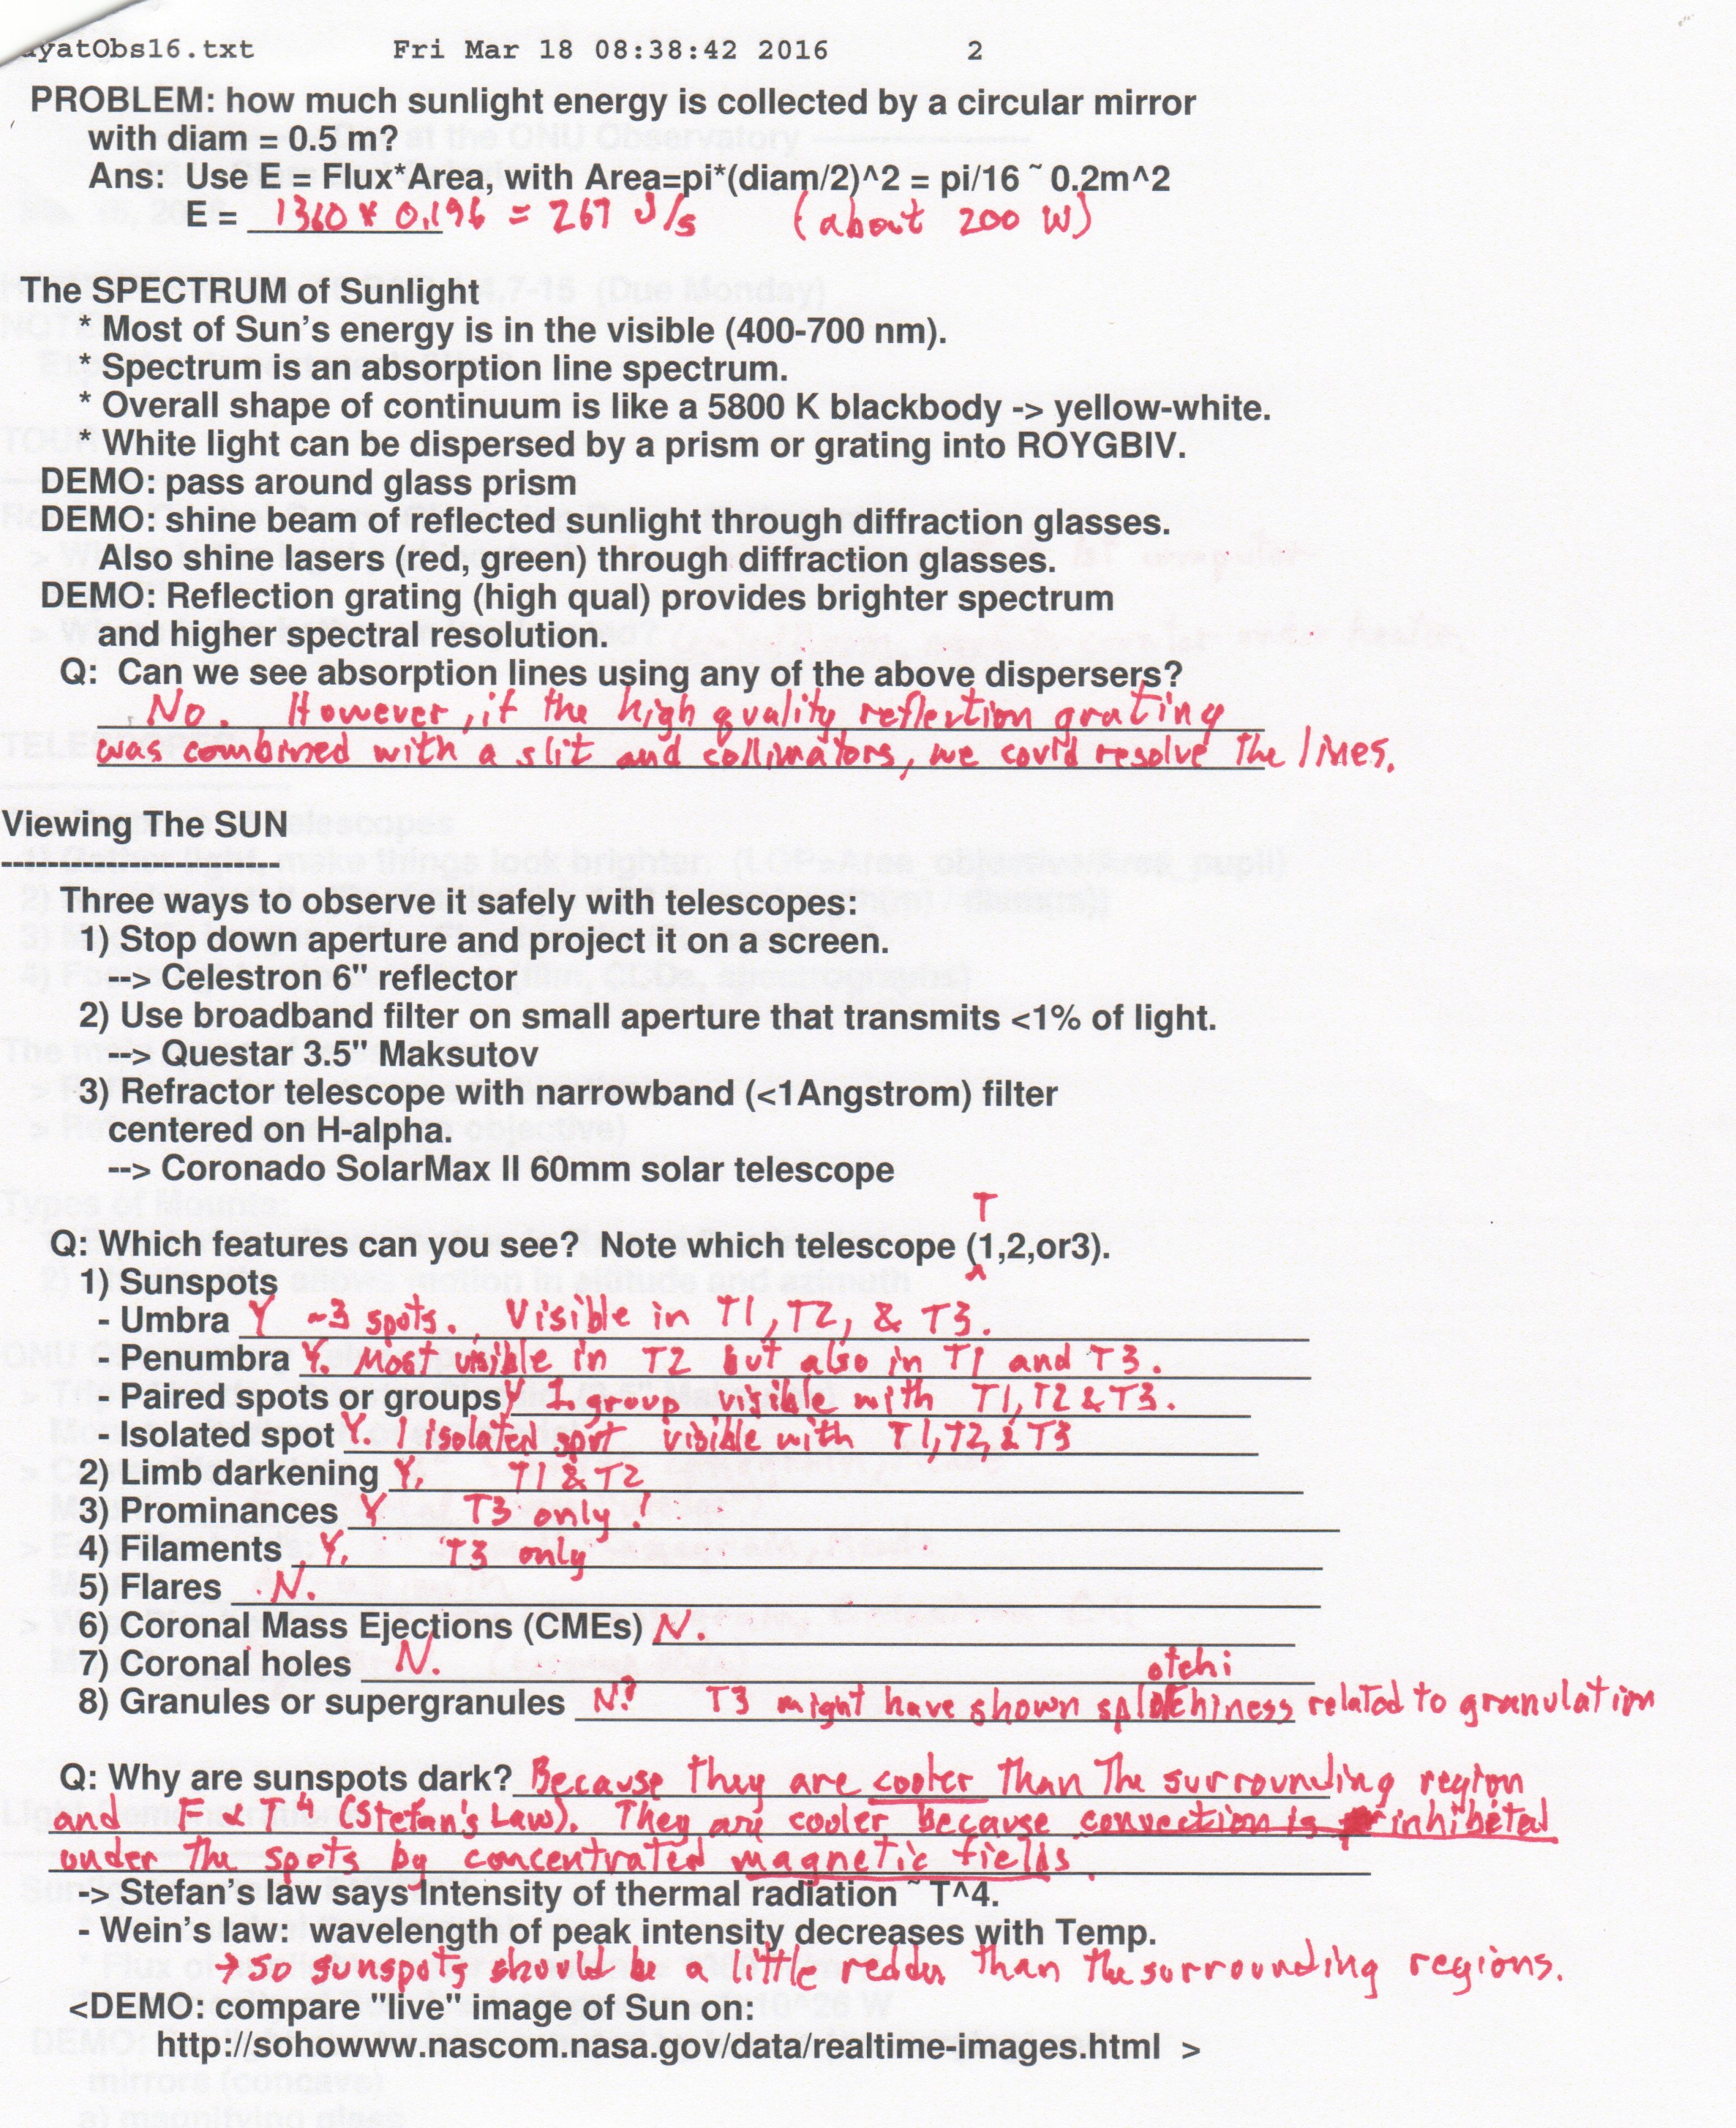 ayatObs16.txt Fri Mar 18 08:38:42 2016 2
PROBLEM: how much sunlight energy is collected by a circular mirror
with diam = 0.5 m?
Ans: Use E = Flux*Area, with Area=pi*(diam/2)^2 = pi/16 ~ 0.2m^2
E = 1360 * 0.196 = 267 J/s (about 200 W)
The SPECTRUM of Sunlight
* Most of Sun's energy is in the visible (400-700 nm).
* Spectrum is an absorption line spectrum.
* Overall shape of continuum is like a 5800 K blackbody -> yellow-white.
* White light can be dispersed by a prism or grating into ROYGBIV.
DEMO: pass around glass prism
DEMO: shine beam of reflected sunlight through diffraction glasses.
Also shine lasers (red, green) through diffraction glasses.
DEMO: Reflection grating (high qual) provides brighter spectrum
and higher spectral resolution.
Q: Can we see absorption lines using any of the above dispersers?
No. However, if the high quality reflection grating
was combined with a slit and collimators, we could resolve the lines.
Viewing The SUN
------------------------
Three ways to observe it safely with telescopes:
1) Stop down aperture and project it on a screen.
--> Celestron 6" reflector
2) Use broadband filter on small aperture that transmits <1% of light.
--> Questar 3.5" Maksutov
3) Refractor telescope with narrowband (<1Angstrom) filter
centered on H-alpha.
--> Coronado SolarMax II 60mm solar telescope
T
Q: Which features can you see? Note which telescope (1,2,or3).
1) Sunspots
- Umbra Y ~3 spots. Visible in T1, T2, & T3.
- Penumbra Y. Most visible in T2 but also in T1 and T3.
- Paired spots or groups Y 1 group visible with T1, T2 & T3.
- Isolated spot Y. 1 isolated spot visible with T1, T2, & T3
2) Limb darkening Y. T1 & T2
3) Prominances Y T3 only!
4) Filaments Y. T3 only
5) Flares N.
6) Coronal Mass Ejections (CMEs) N.
7) Coronal holes N.
otchi
8) Granules or supergranules N? T3 might have shown splotchiness related to granulation
Q: Why are sunspots dark? Because they are cooler than the surrounding region
and F α T^4 (Stefan's Law). They are cooler because convection is inhibited
under the spots by concentrated magnetic fields.
-> Stefan's law says Intensity of thermal radiation ~ T^4.
- Wein's law: wavelength of peak intensity decreases with Temp.
→ so sunspots should be a little redder than the surrounding regions.
<DEMO: compare "live" image of Sun on:
http://sohowww.nascom.nasa.gov/data/realtime-images.html >